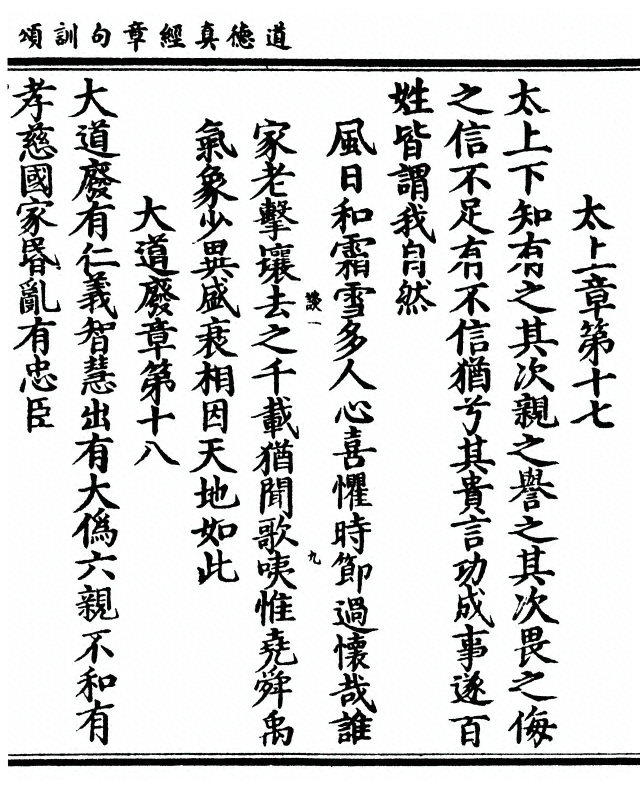 道德真經章句訓頌
太上章第十七
太上下知有之其次親之譽之其次畏之侮
之信不足有不信猶兮其貴言功成事遂百
姓皆謂我自然
風日和霜雪多人心喜懼時節過懷哉誰
談一
九
家老擊壤去之千載猶聞歌咦惟堯舜禹
氣象少異盛衰相因天地如此
大道廢章第十八
大道廢有仁義智慧出有大僞六親不和有
孝慈國家昬亂有忠臣